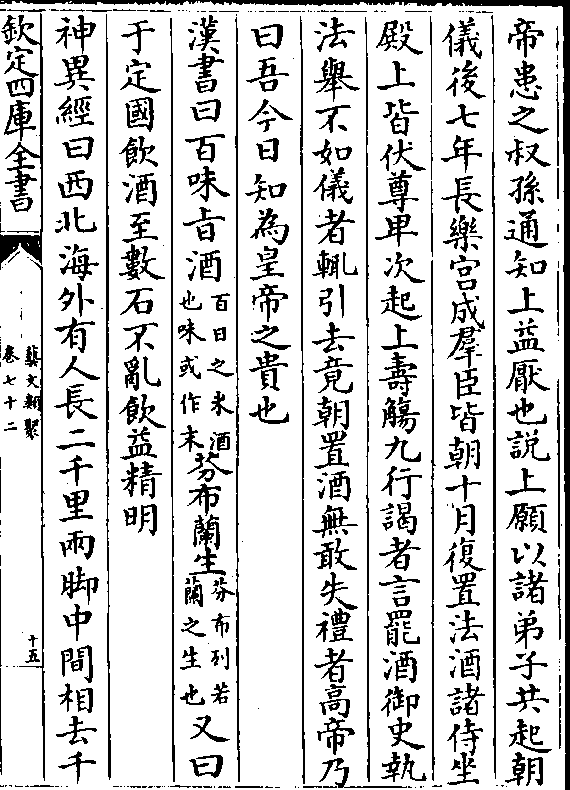 帝患之叔孫通知上益厭也說上願以諸弟子共起朝
儀後七年長樂宮成羣臣皆朝十月復置法酒諸侍坐
殿上皆伏尊卑次起上壽觴九行謁者言罷酒御史執
法舉不如儀者輒引去竟朝置酒無敢失禮者高帝乃
曰吾今日知為皇帝之貴也
漢書曰百味旨酒百日之末酒也味或作末芬布蘭生芬布列若蘭之生也又曰
于定國飲酒至數石不亂飲益精明
神異經曰西北海外有人長二千里兩脚中間相去千
欽定四庫全書
藝文類聚
卷七十二
十五